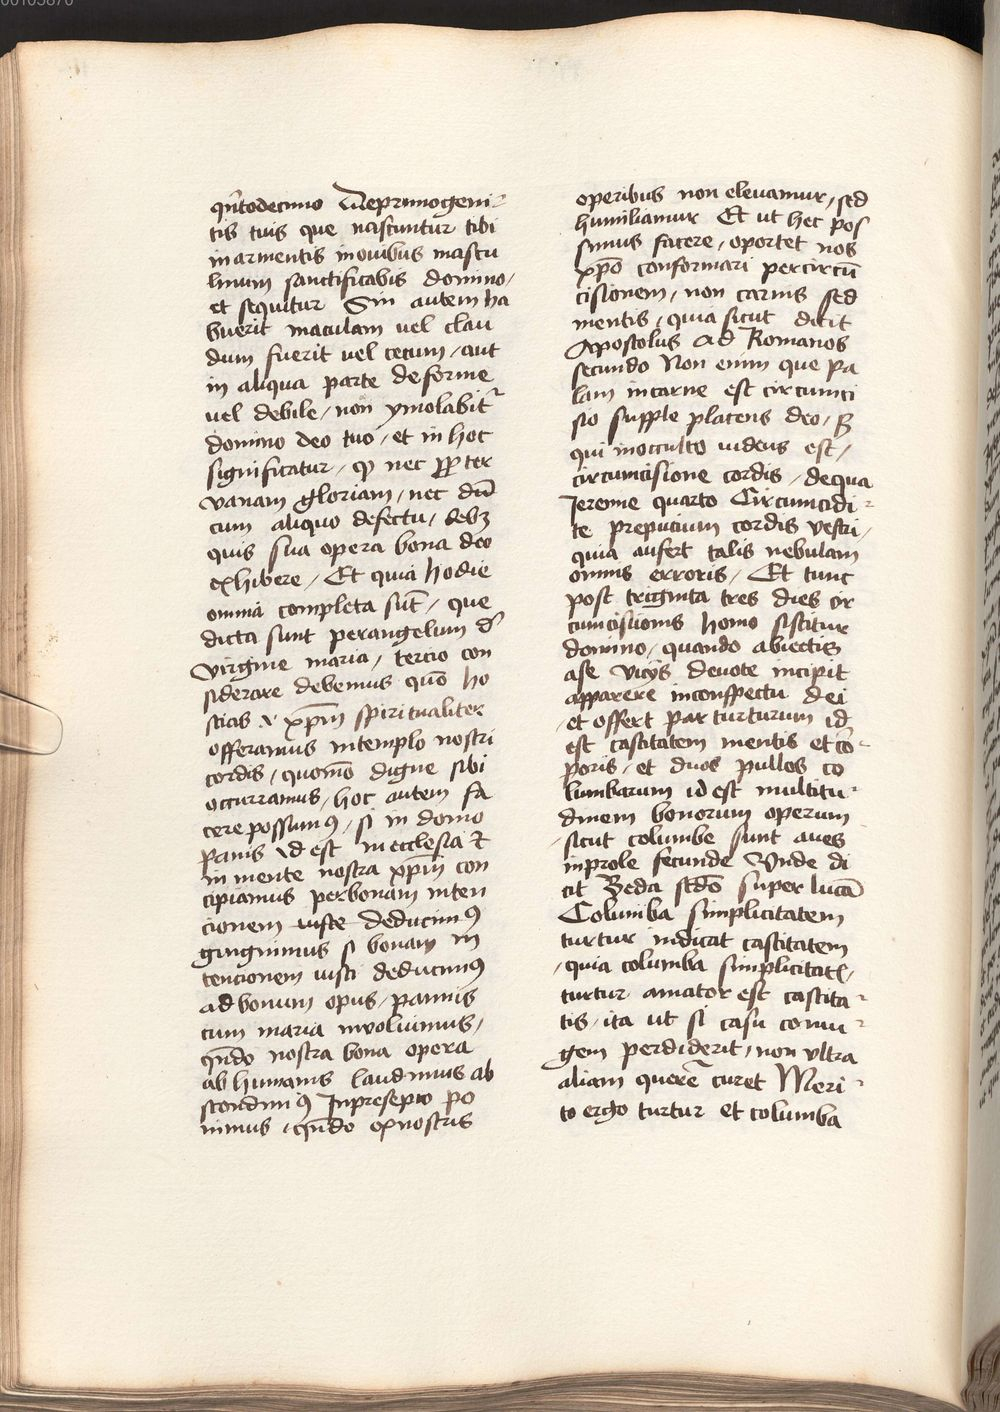 00103870
qn̄todecimo De primogeni-
tis tuis que nascuntur tibi
in armentis in ouibus mascu
linum sanctificabis domino,
et sequitur Sin autem ha
buerit maculam uel clau
dum fuerit uel cecum, aut
in aliqua parte deforme
uel debile, non ymolabit᷑
domino deo tuo, et in hoc
significatur, ꝙ nec ꝓpter
vanam gloriam, nec dū
cum aliquo defectu, debꝫ
quis sua opera bona deo
exhibere, Et quia hodie
omnia completa sūt, que
dicta sunt per angelum d̓
virgine maria, tercio con
siderare debemus quō ho
stias xp̄m spiritualiter
offeramus in templo nostri
cordis, quomō digne sibi
occurramus, hoc autem fa
cere possumꝰ, si in domo
panis id est in ecclesia et
in mente nostra xp̄m con
cipiamus per bonam inten
cionem iuste deducimꝰ
gingnimus si bonam in
tencionem iusti deducimꝰ
ad bonum opus, pannis
cum maria inuoluimus,
qn̄do nostra bona opera
ab humanis laudimus ab
scondimꝰ In presepio po
nimus, qn̄do ex nostris
operibus non eleuamur, sed
humiliamur Et ut hec pos
simus facere, oportet nos
xp̄o conformari per circū
cisionem, non carnis sed
mentis, quia sicut dicit
Apostolus ad Romanos
secundo Non enim que pa
lam in carne est circumci
sio supple placens deo, sꝫ
qui in occulto iudeus est,
circumcisione cordis, de qua
Jereme quarto Circumcidi-
te preputium cordis vestri,
quia aufert talis nebulam
omnis erroris, Et tunc
post triginta tres dies cir
cumcisionis homo sistitur
domino, quando abiectis
a se vicijs deuote incipit
apparere in conspectu dei
, et offert par turturum id
est castitatem mentis et cor-
poris, et duos pullos co
lumbarum id est multitu-
dinem bonorum operum
, sicut columbe sunt aues
in prole fecunde Unde di
cit Beda scd̄o super lucā
Columba simplicitatem
turtur indicat castitatem
, quia columba simplicitat̄,
turtur amator est castita-
tis, ita ut si casu coniu-
gem perdiderit, non vltra
aliam querē curet Meri-
to ergo turtur et columba